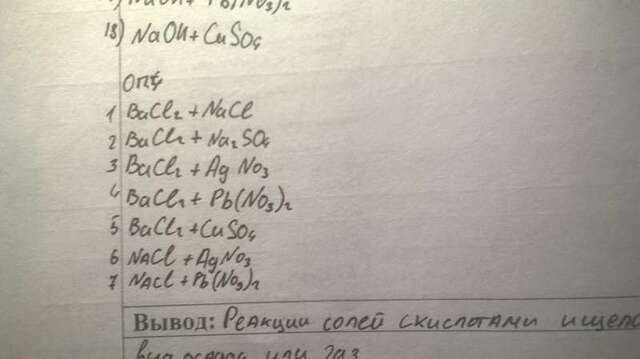 NaOH + Pb(NO3)2
18) NaOH + CuSO4
ОП4
1 BaCl2 + NaCl
2 BaCl2 + Na2SO4
3 BaCl2 + AgNO3
4 BaCl2 + Pb(NO3)2
5 BaCl2 + CuSO4
6 NACl + AgNO3
7 NACl + Pb(NO3)2
Вывод: Реакции солей с кислотами и щело
вид осадка или газ